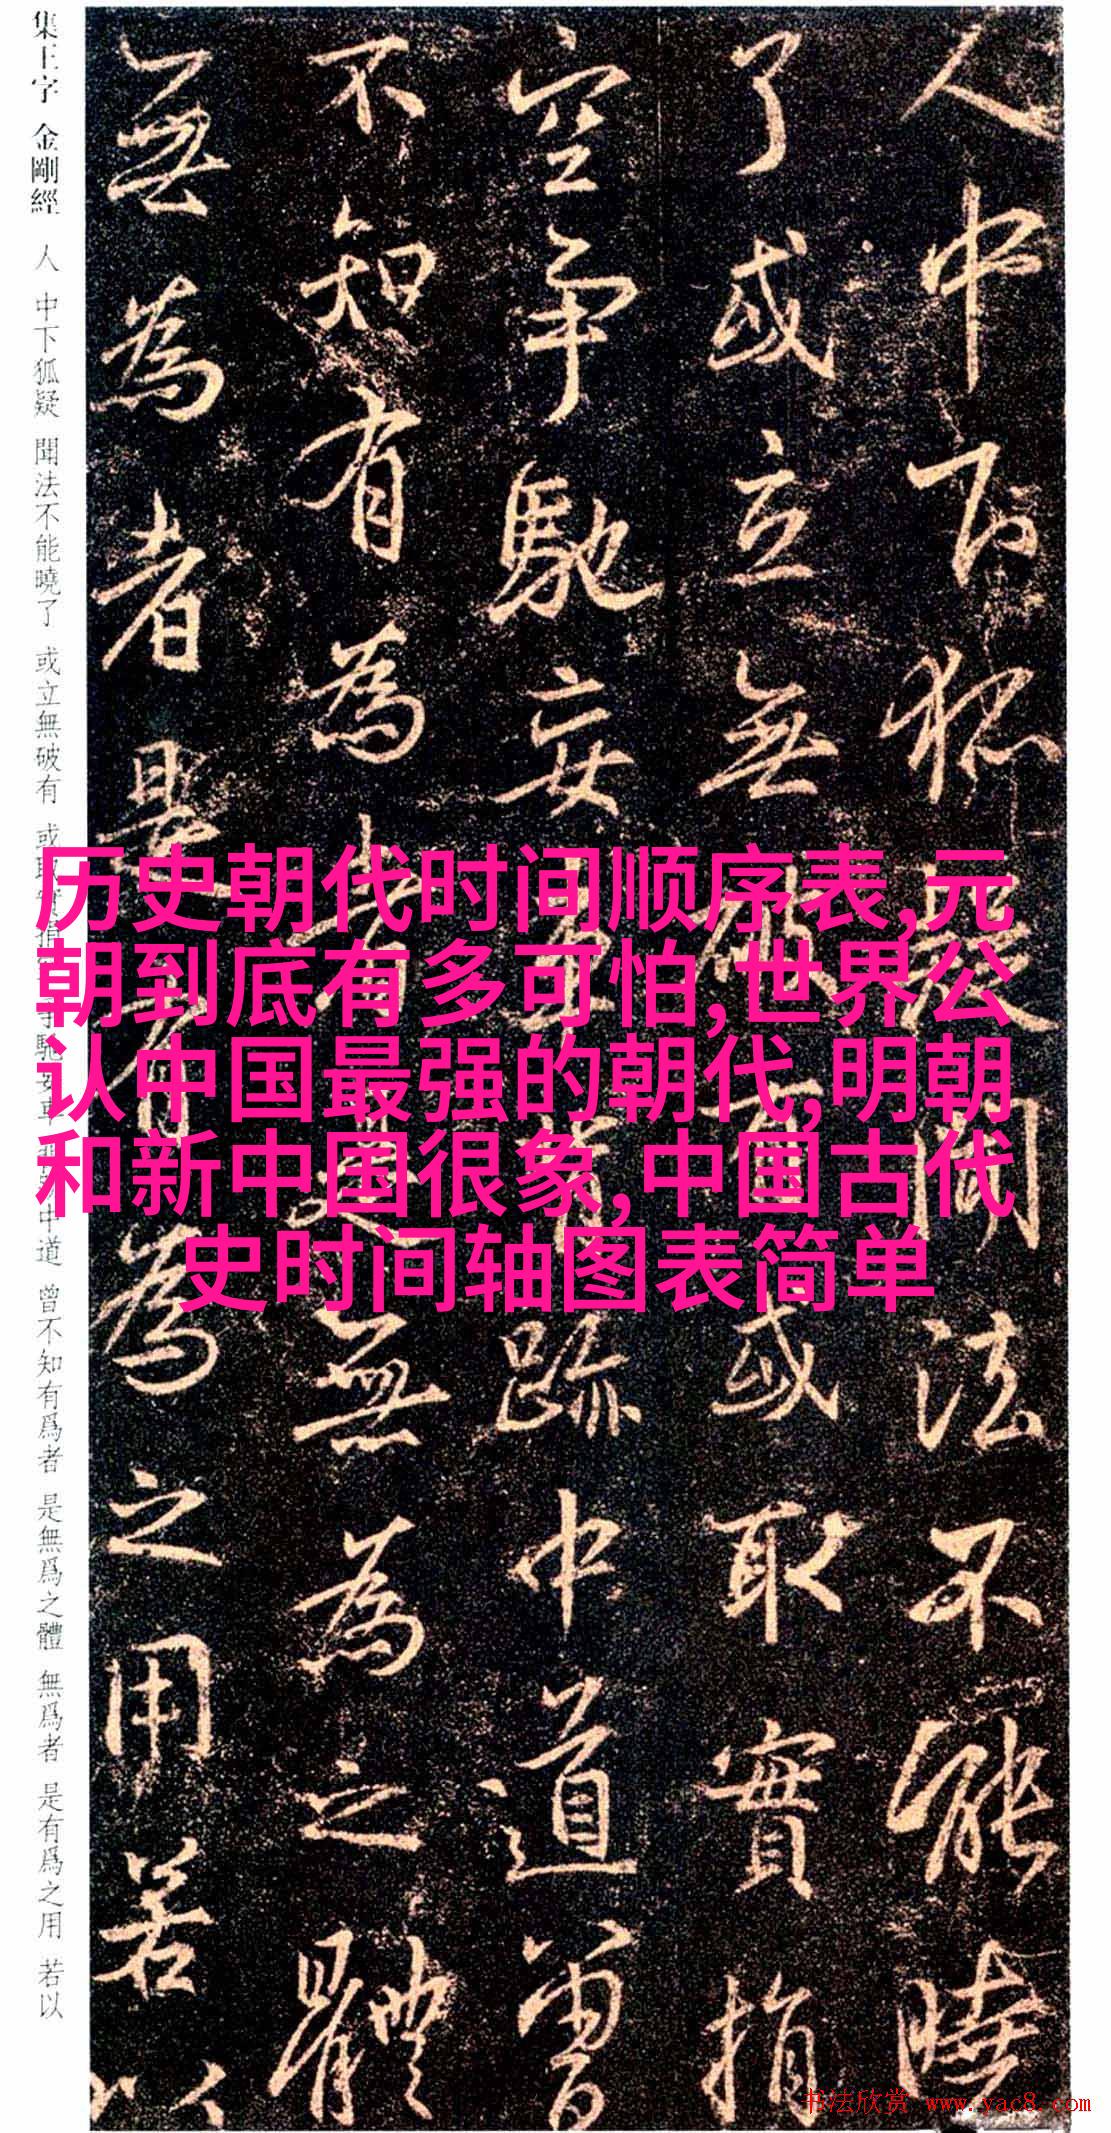 集王字 金剛經 人 中下狐疑 聞法不能曉了 或立無破有 或取 中道 曾不知有爲者 是無爲之體 無爲者 是有爲之用 若以
人中下狐聞法不能曉
了或立無破有或取實捐
空爭馳妄跡中道曾
不知有為者是無為之體
無為者是有為之用若以
历史朝代时间顺序表,元
朝到底有多可怕,世界公
认中国最强的朝代,明朝
和新中国很象,中国古代
史时间轴图表简单
书法欣赏 www.yac8.com